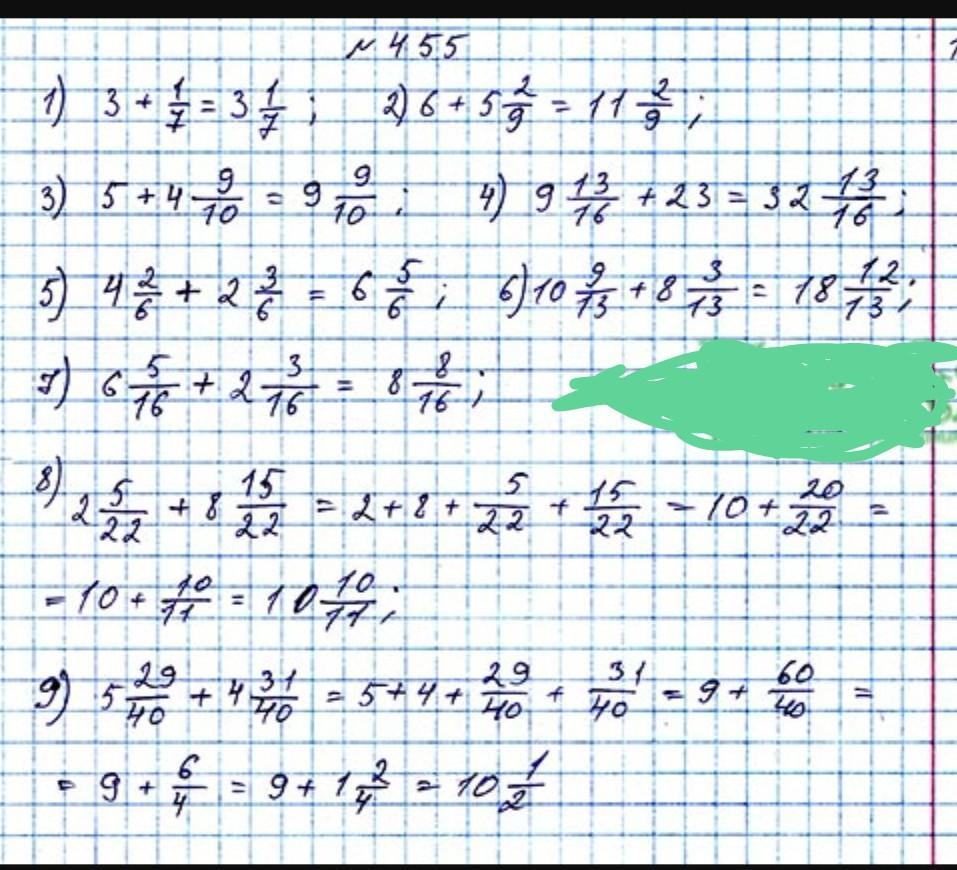 № 455
1) 3 + 1/7 = 3 1/7 ; 2) 6 + 5 2/9 = 11 2/9 ;
3) 5 + 4 9/10 = 9 9/10 ; 4) 9 13/16 + 23 = 32 13/16 ;
5) 4 2/6 + 2 3/6 = 6 5/6 ; 6) 10 9/13 + 8 3/13 = 18 12/13 ;
7) 6 5/16 + 2 3/16 = 8 8/16 ;
8) 2 5/22 + 8 15/22 = 2 + 8 + 5/22 + 15/22 = 10 + 20/22 =
= 10 + 10/11 = 10 10/11 ;
9) 5 29/40 + 4 31/40 = 5 + 4 + 29/40 + 31/40 = 9 + 60/40 =
= 9 + 6/4 = 9 + 1 2/4 = 10 1/2